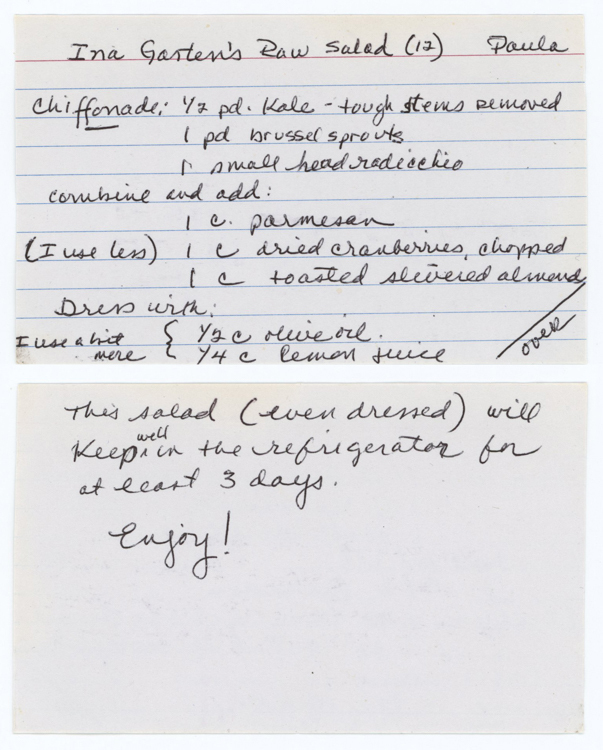 Ina Garten's Raw Salad (12) Paula
Chiffonade: 1/2 pd. Kale - tough stems removed
1 pd brussel sprouts
1 small head radicchio
combine and add:
1 c. parmesan
(I use less) 1 c dried cranberries, chopped
1 c toasted slivered almonds
Dress with:
I use a bit more { 1/2 c olive oil.
1/4 c lemon juice
over
This salad (even dressed) will
Keep well in the refrigerator for
at least 3 days.
Enjoy!